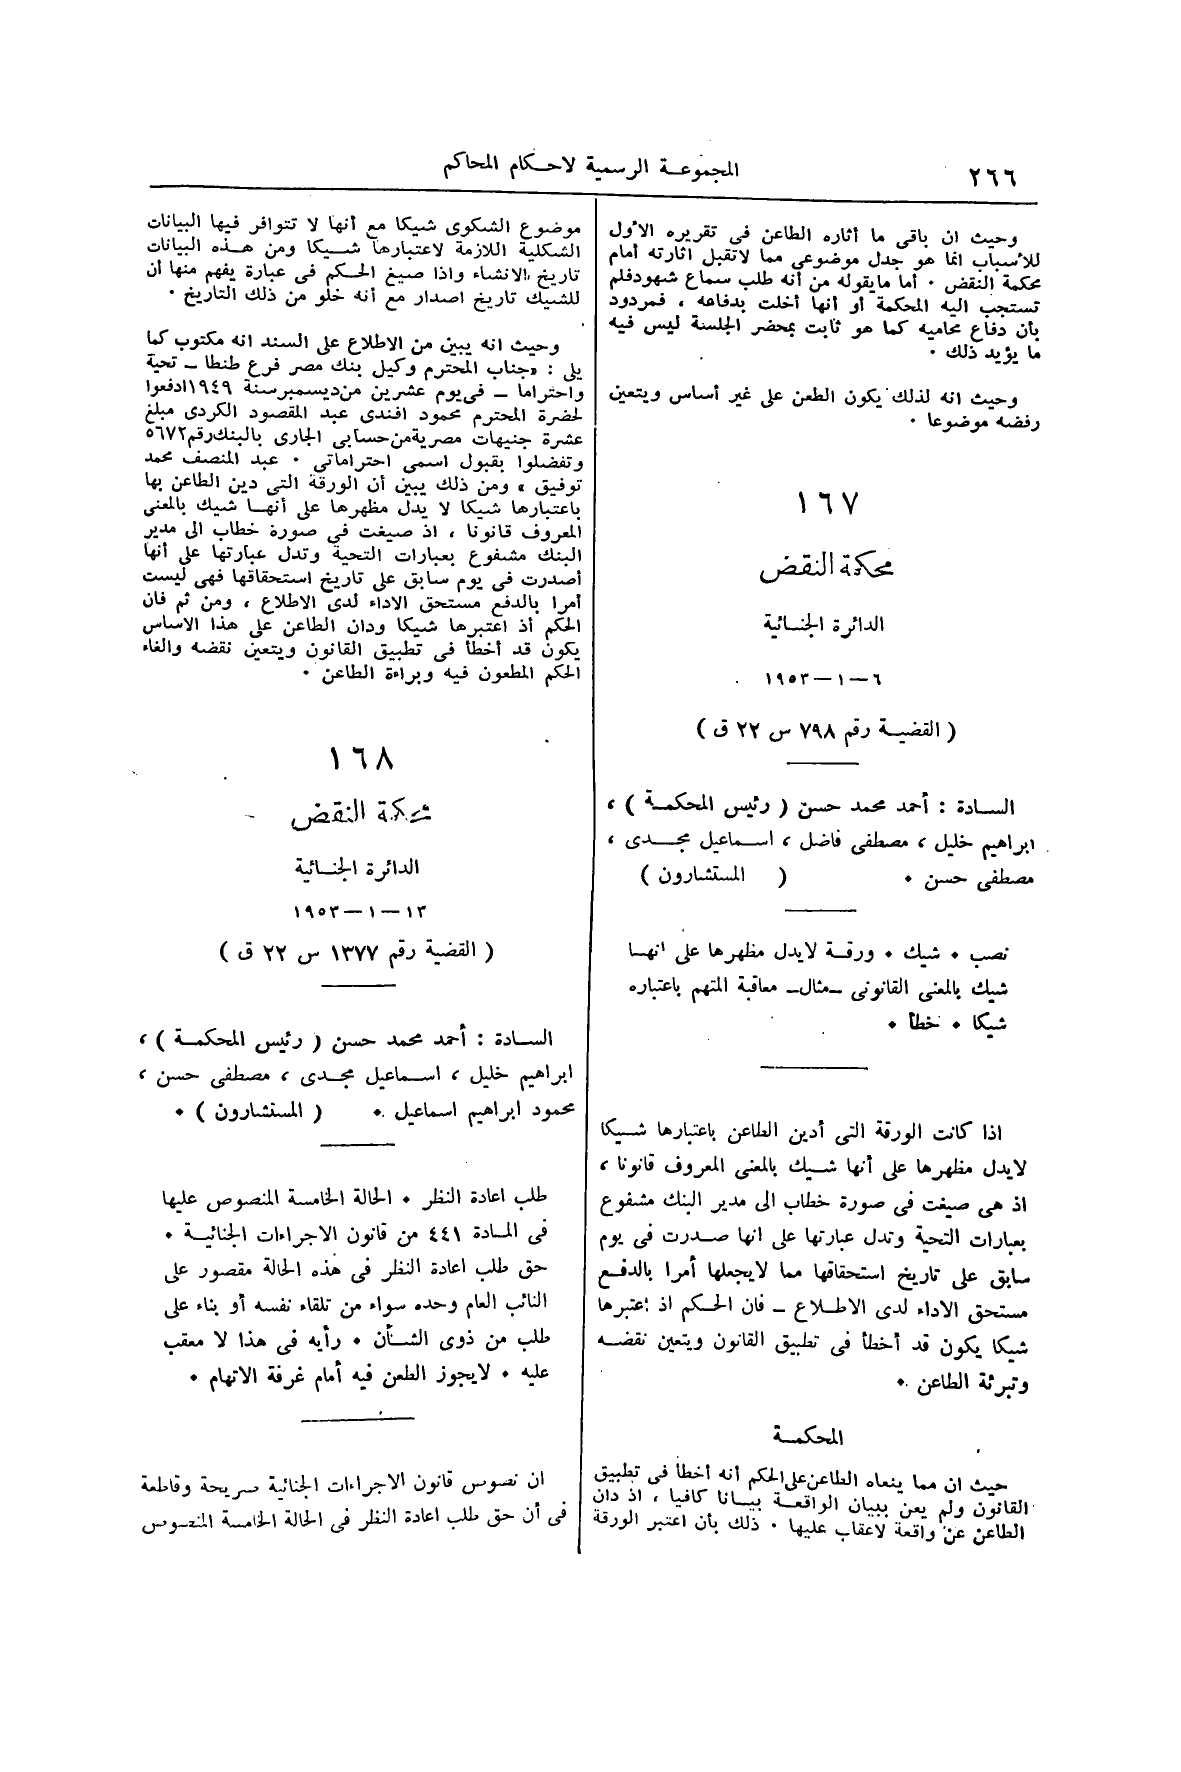 ٢٦٦
المجموعة الرسمية لاحكام المحاكم
وحيث ان باقى ما أثاره الطاعن فى تقريره الأول
للأسباب انما هو جدل موضوعى مما لاتقبل اثارته أمام
محكمة النقض ٠ أما مايقوله من أنه طلب سماع شهودفلم
تستجب اليه المحكمة أو أنها أخلت بدفاعه ، فمردود
بأن دفاع محاميه كما هو ثابت بمحضر الجلسة ليس فيه
ما يؤيد ذلك ٠
وحيث انه لذلك يكون الطعن على غير أساس ويتعين
رفضه موضوعا ٠
١٦٧
محكمة النقض
الدائرة الجنائية
٦ – ١ – ١٩٥٣
( القضية رقم ٧٩٨ س ٢٢ ق )
السادة : أحمد محمد حسن ( رئيس المحكمة ) ،
ابراهيم خليل ، مصطفى فاضل ، اسماعيل مجدى ،
مصطفى حسن ٠ ( المستشارون )
نصب ٠ شيك ٠ ورقة لايدل مظهرها على انها
شيك بالمعنى القانونى –مثال– معاقبة المتهم باعتباره
شيكا ٠ خطأ ٠
اذا كانت الورقة التى أدين الطاعن باعتبارها شيكا
لايدل مظهرها على أنها شيك بالمعنى المعروف قانونا ،
اذ هى صيغت فى صورة خطاب الى مدير البنك مشفوع
بعبارات التحية وتدل عبارتها على انها صدرت فى يوم
سابق على تاريخ استحقاقها مما لايجعلها أمرا بالدفع
مستحق الاداء لدى الاطلاع – فان الحكم اذ اعتبرها
شيكا يكون قد أخطأ فى تطبيق القانون ويتعين نقضه
وتبرئة الطاعن ٠
المحكمة
حيث ان مما ينعاه الطاعن على الحكم أنه أخطأ فى تطبيق
القانون ولم يعن ببيان الواقعة بيانا كافيا ، اذ دان
الطاعن عن واقعة لاعقاب عليها ٠ ذلك بأن اعتبر الورقة
موضوع الشكوى شيكا مع أنها لا تتوافر فيها البيانات
الشكلية اللازمة لاعتبارها شيكا ومن هذه البيانات
تاريخ الانشاء واذا صيغ الحكم فى عبارة يفهم منها أن
للشيك تاريخ اصدار مع أنه خلو من ذلك التاريخ ٠
وحيث انه يبين من الاطلاع على السند انه مكتوب كما
يلى : «جناب المحترم وكيل بنك مصر فرع طنطا – تحية
واحتراما – فى يوم عشرين من ديسمبر سنة ١٩٤٩ ادفعوا
لحضرة المحترم محمود افندى عبد المقصود الكردى مبلغ
عشرة جنيهات مصرية من حسابى الجارى بالبنك رقم ٥٦٧٢
وتفضلوا بقبول اسمى احتراماتى ٠ عبد المنصف محمد
توفيق » ومن ذلك يبين أن الورقة التى دين الطاعن بها
باعتبارها شيكا لا يدل مظهرها على أنها شيك بالمعنى
المعروف قانونا ، اذ صيغت فى صورة خطاب الى مدير
البنك مشفوع بعبارات التحية وتدل عبارتها على أنها
أصدرت فى يوم سابق على تاريخ استحقاقها فهى ليست
أمرا بالدفع مستحق الاداء لدى الاطلاع ، ومن ثم فان
الحكم أذ اعتبرها شيكا ودان الطاعن على هذا الاساس
يكون قد أخطأ فى تطبيق القانون ويتعين نقضه والغاء
الحكم المطعون فيه وبراءة الطاعن ٠
١٦٨
محكمة النقض
الدائرة الجنائية
١٣ – ١ – ١٩٥٣
( القضية رقم ١٣٧٧ س ٢٢ ق )
السادة : أحمد محمد حسن ( رئيس المحكمة ) ،
ابراهيم خليل ، اسماعيل مجدى ، مصطفى حسن ،
محمود ابراهيم اسماعيل ٠ ( المستشارون ) ٠
طلب اعادة النظر ٠ الحالة الخامسة المنصوص عليها
فى المادة ٤٤١ من قانون الاجراءات الجنائية ٠
حق طلب اعادة النظر فى هذه الحالة مقصور على
النائب العام وحده سواء من تلقاء نفسه أو بناء على
طلب من ذوى الشأن ٠ رأيه فى هذا لا معقب
عليه ٠ لايجوز الطعن فيه أمام غرفة الاتهام ٠
ان نصوص قانون الاجراءات الجنائية صريحة وقاطعة
فى أن حق طلب اعادة النظر فى الحالة الخامسة المنصوص